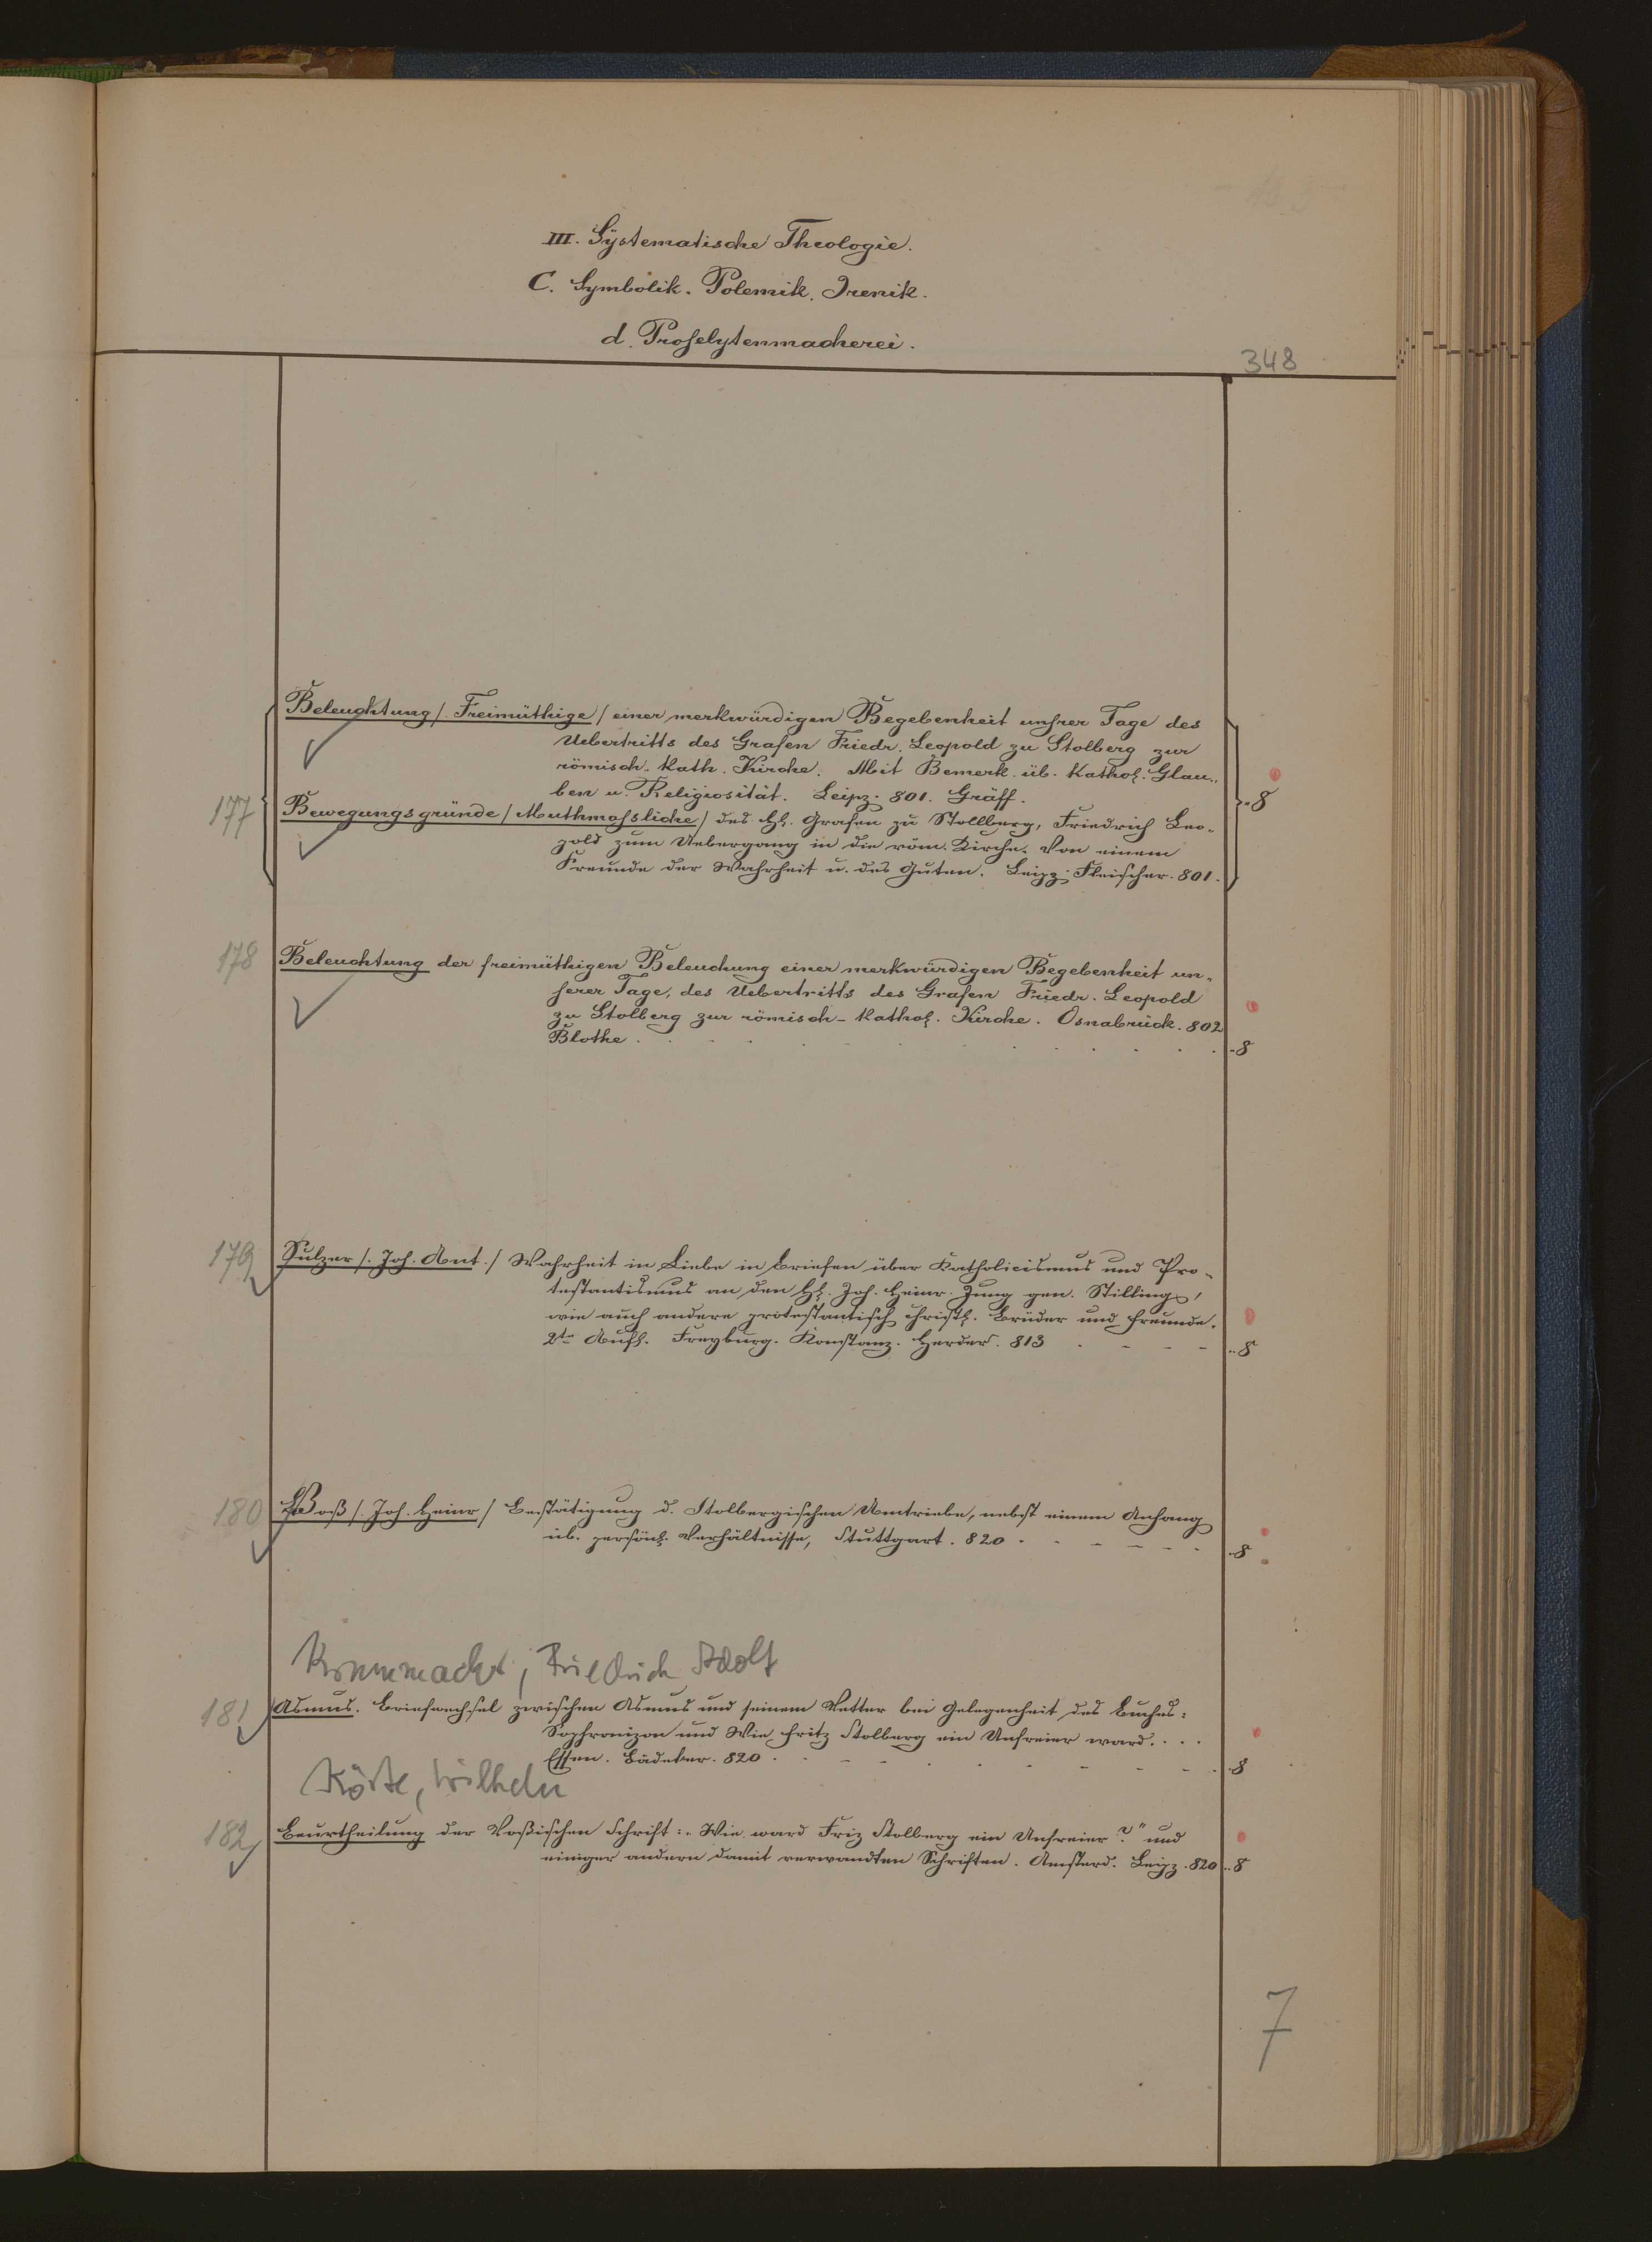 III. Systematische Theologie.
C. Symbolik. Polemik. Irenik.
d. Proselytenmacherei.
348
Beleuchtung /. Freimüthige / einer merkwürdigen Begebenheit unsrer Tage des
Uebertritts des Grafen Friedr. Leopold zu Stolberg zur
römisch-kath. Kirche. Mit Bemerk. üb. kathol. Glau-
ben u. Religiosität. Leipz. 801. Gräff.
177 -8
Bewegungsgründe / Muthmassliche / des H. Grafen zu Stollberg, Friedrich Leo-
pold zum Uebergang in die röm. Kirche. Von einem
Freunde der Wahrheit u. des Guten. Leipz. Fleischer. 801.
178 Beleuchtung der freimüthigen Beleuchung einer merkwürdigen Begebenheit un-
serer Tage, des Uebertritts des Grafen Friedr. Leopold
zu Stolberg zur römisch-kathol. Kirche. Osnabrück. 802
Blothe. -8
179 Sulzer /. Joh. Ant. / Wahrheit in Liebe in Briefen über Katholicismus und Pro-
testantismus an den H. Joh. Heinr. Jung gen. Stilling,
wie auch andere protestantisch christl. Brüder und Freunde.
2te Aufl. Freyburg. Konstanz. Herder. 813 -8
180 Voß /. Joh. Heinr / Bestätigung d. Stolbergischen Umtriebe, nebst einem Anhang
üb. persönl. Verhältnisse, Stuttgart. 820 -8
Krummacher, Friedrich Adolf
181 Asmus. Briefwechsel zwischen Asmus und seinem Vetter bei Gelegenheit des Buches:
Sophronizon und Wie Fritz Stolberg ein Unfreier ward. . . .
Essen. Bädeker. 820 -8
Körte, Wilhelm
182 Beurtheilung der Voßischen Schrift: „Wie ward Friz Stolberg ein Unfreier?" und
einiger andern damit verwandten Schriften. Amsterd. Leipz. 820 -8
7